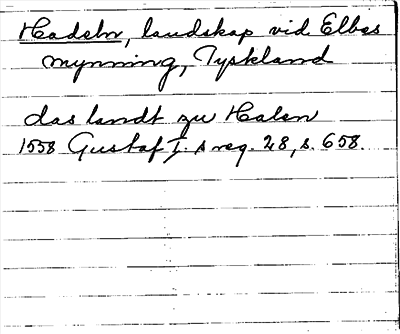 Hadeln, landskap vid Elbes
mynning, Tyskland
das landt zu Halen
1558 Gustaf I:s reg. 28, s. 658.